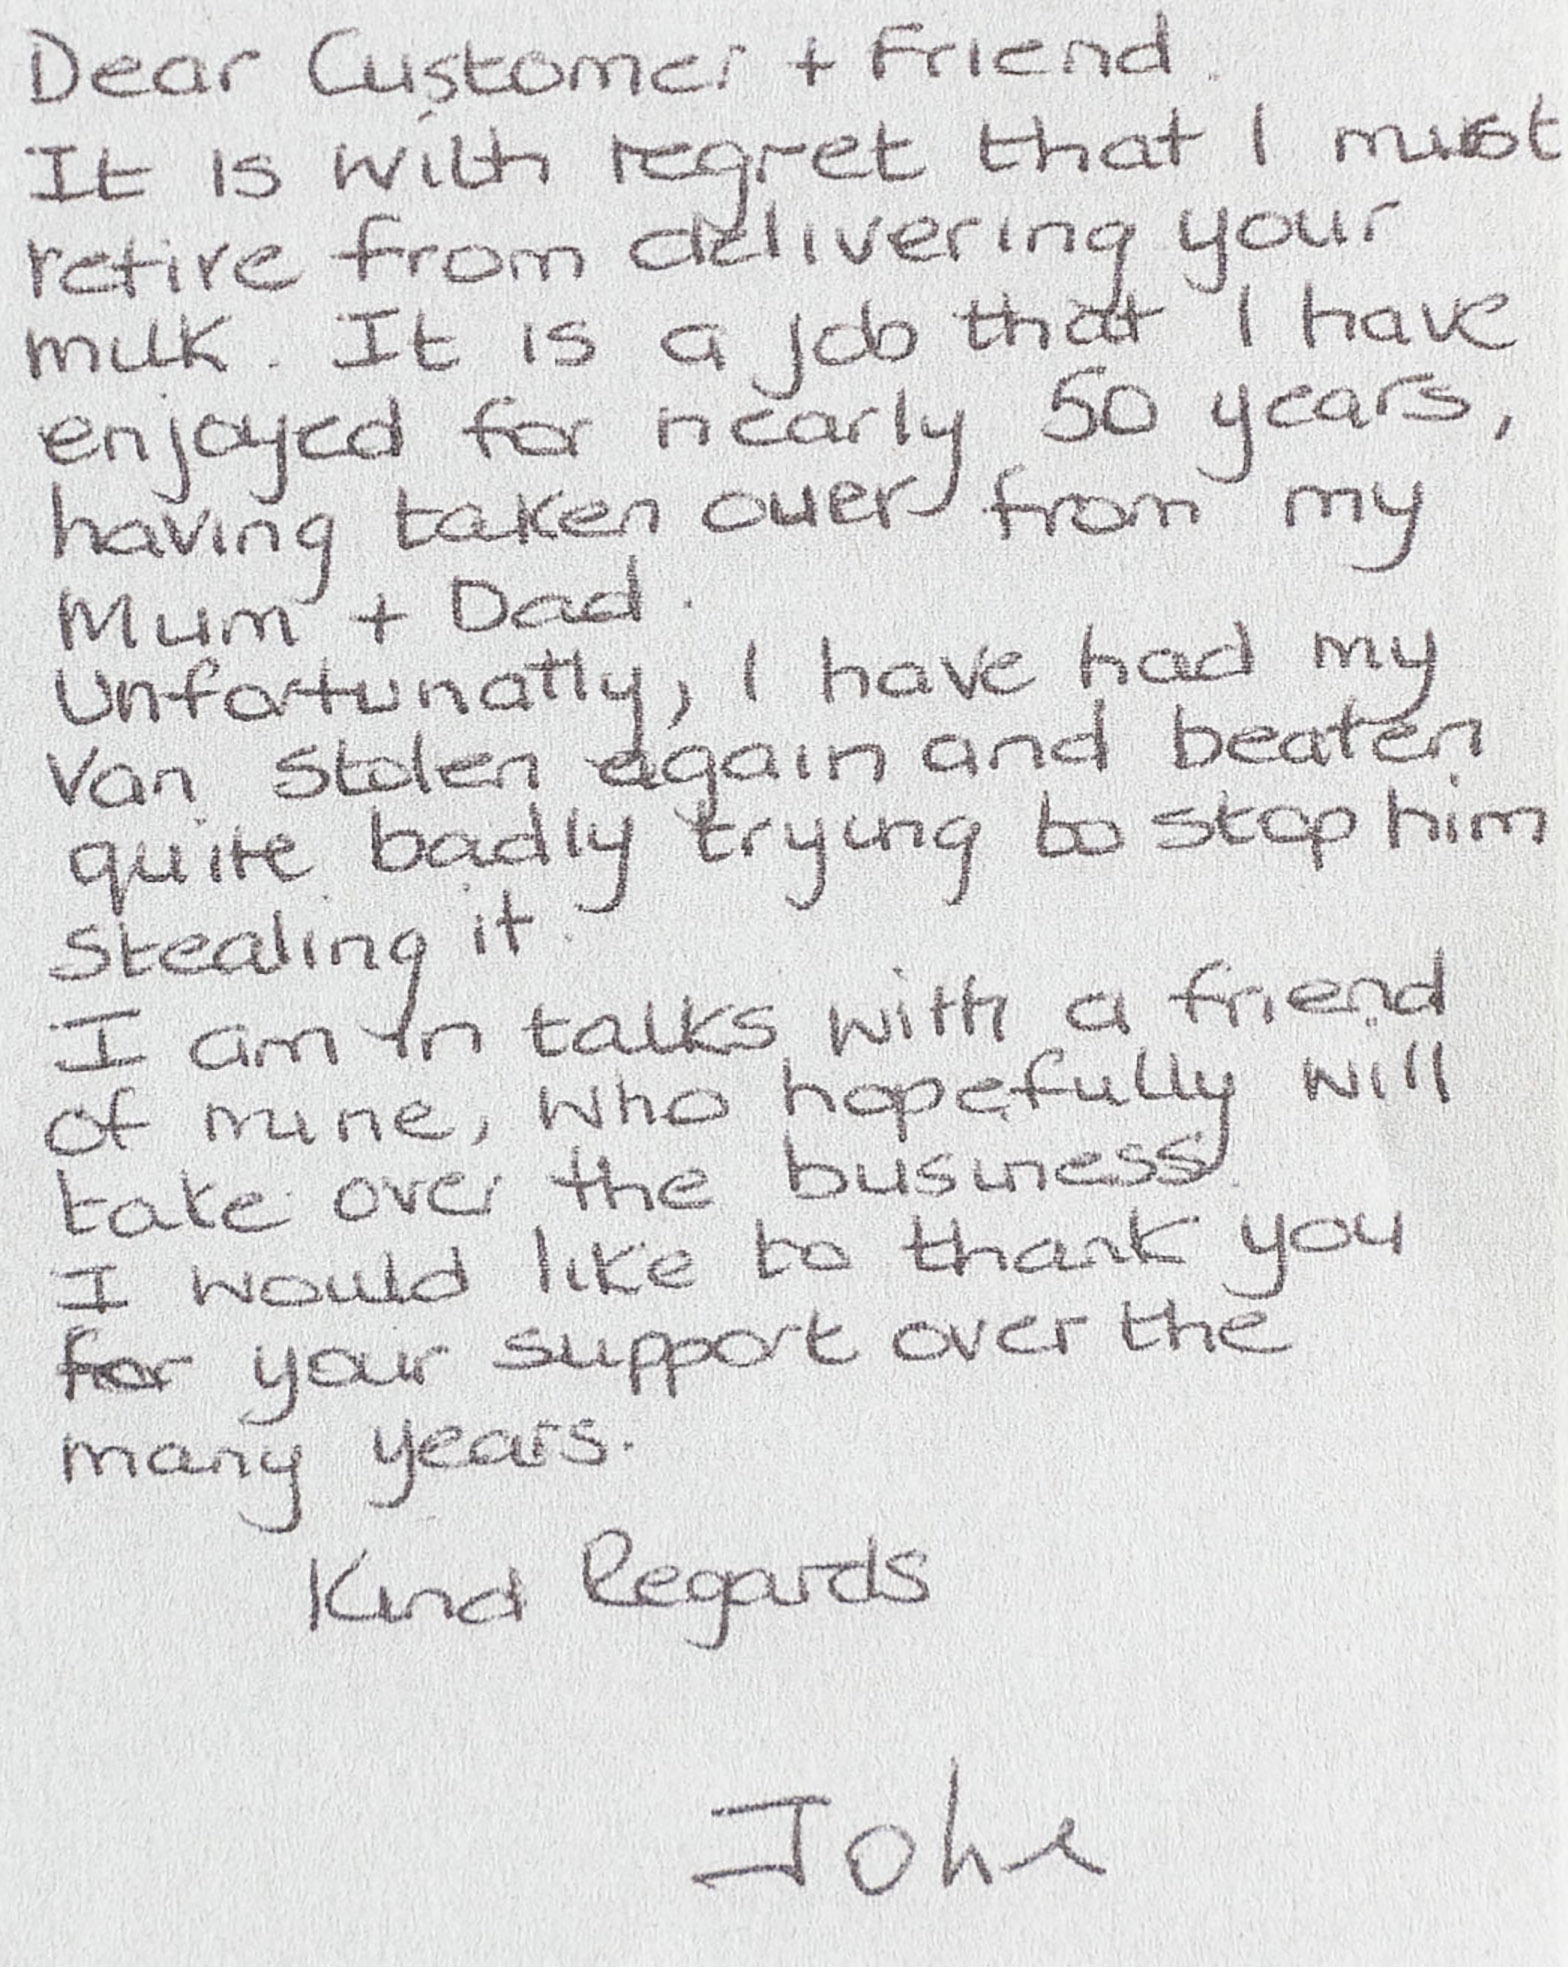 Dear Customer + Friend.
It is with regret that I must
retire from delivering your
milk. It is a job that I have
enjoyed for nearly 50 years,
having taken over from my
Mum + Dad.
Unfortunatly, I have had my
Van stolen again and beaten
quite badly trying to stop him
stealing it.
I am in talks with a friend
of mine, who hopefully will
take over the business.
I would like to thank you
for your support over the
many years.
Kind Regards
John